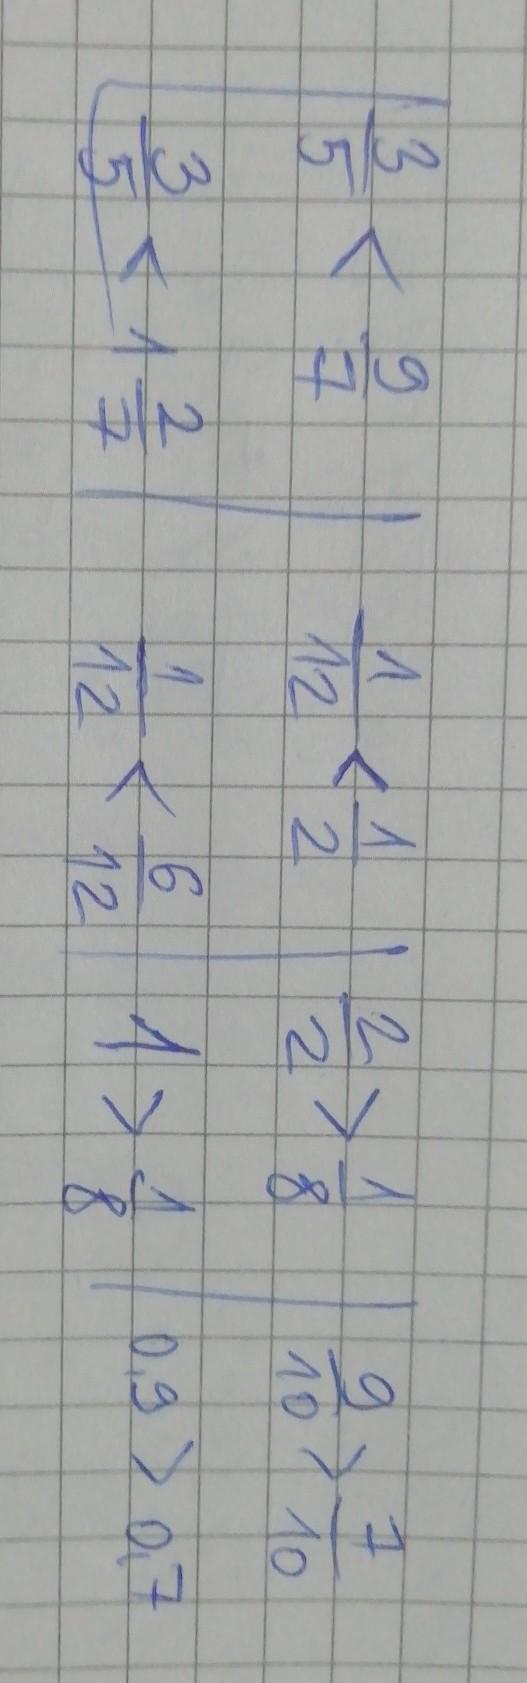 3/5 < 9/7 | 1/12 < 1/2 | 2/2 > 1/8 | 9/10 > 7/10
3/5 < 1 2/7 | 1/12 < 6/12 | 1 > 1/8 | 0,9 > 0,7